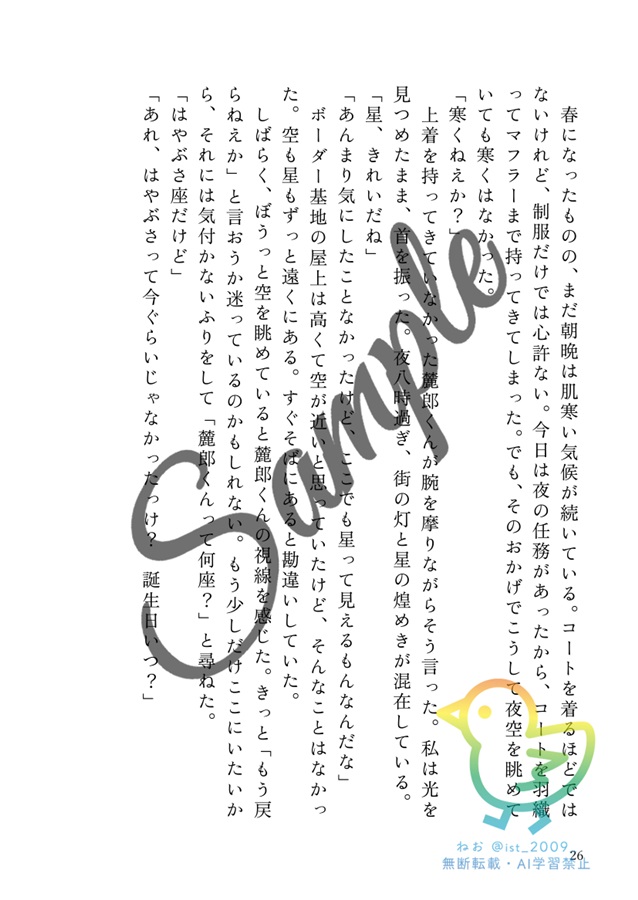 春になったものの、まだ朝晩は肌寒い気候が続いている。コートを着るほどでは
ないけれど、制服だけでは心許ない。今日は夜の任務があったから、コートを羽織
ってマフラーまで持ってきてしまった。でも、そのおかげでこうして夜空を眺めて
いても寒くはなかった。
「寒くねえか?」
上着を持ってきていなかった麓郎くんが腕を摩りながらそう言った。私は光を
見つめたまま、首を振った。夜八時過ぎ、街の灯と星の煌めきが混在している。
「星、きれいだね」
「あんまり気にしたことなかったけど、ここでも星って見えるもんなんだな」
ボーダー基地の屋上は高くて空が近いと思っていたけど、そんなことはなかっ
た。空も星もずっと遠くにある。すぐそばにあると勘違いしていた。
しばらく、ぼうっと空を眺めていると麓郎くんの視線を感じた。きっと「もう戻
らねえか」と言おうか迷っているのかもしれない。もう少しだけここにいたいか
ら、それには気付かないふりをして「麓郎くんって何座?」と尋ねた。
「はやぶさ座だけど」
「あれ、はやぶさって今ぐらいじゃなかったっけ? 誕生日いつ?」
Sample
ねお @ist_2009
無断転載・AI学習禁止
26